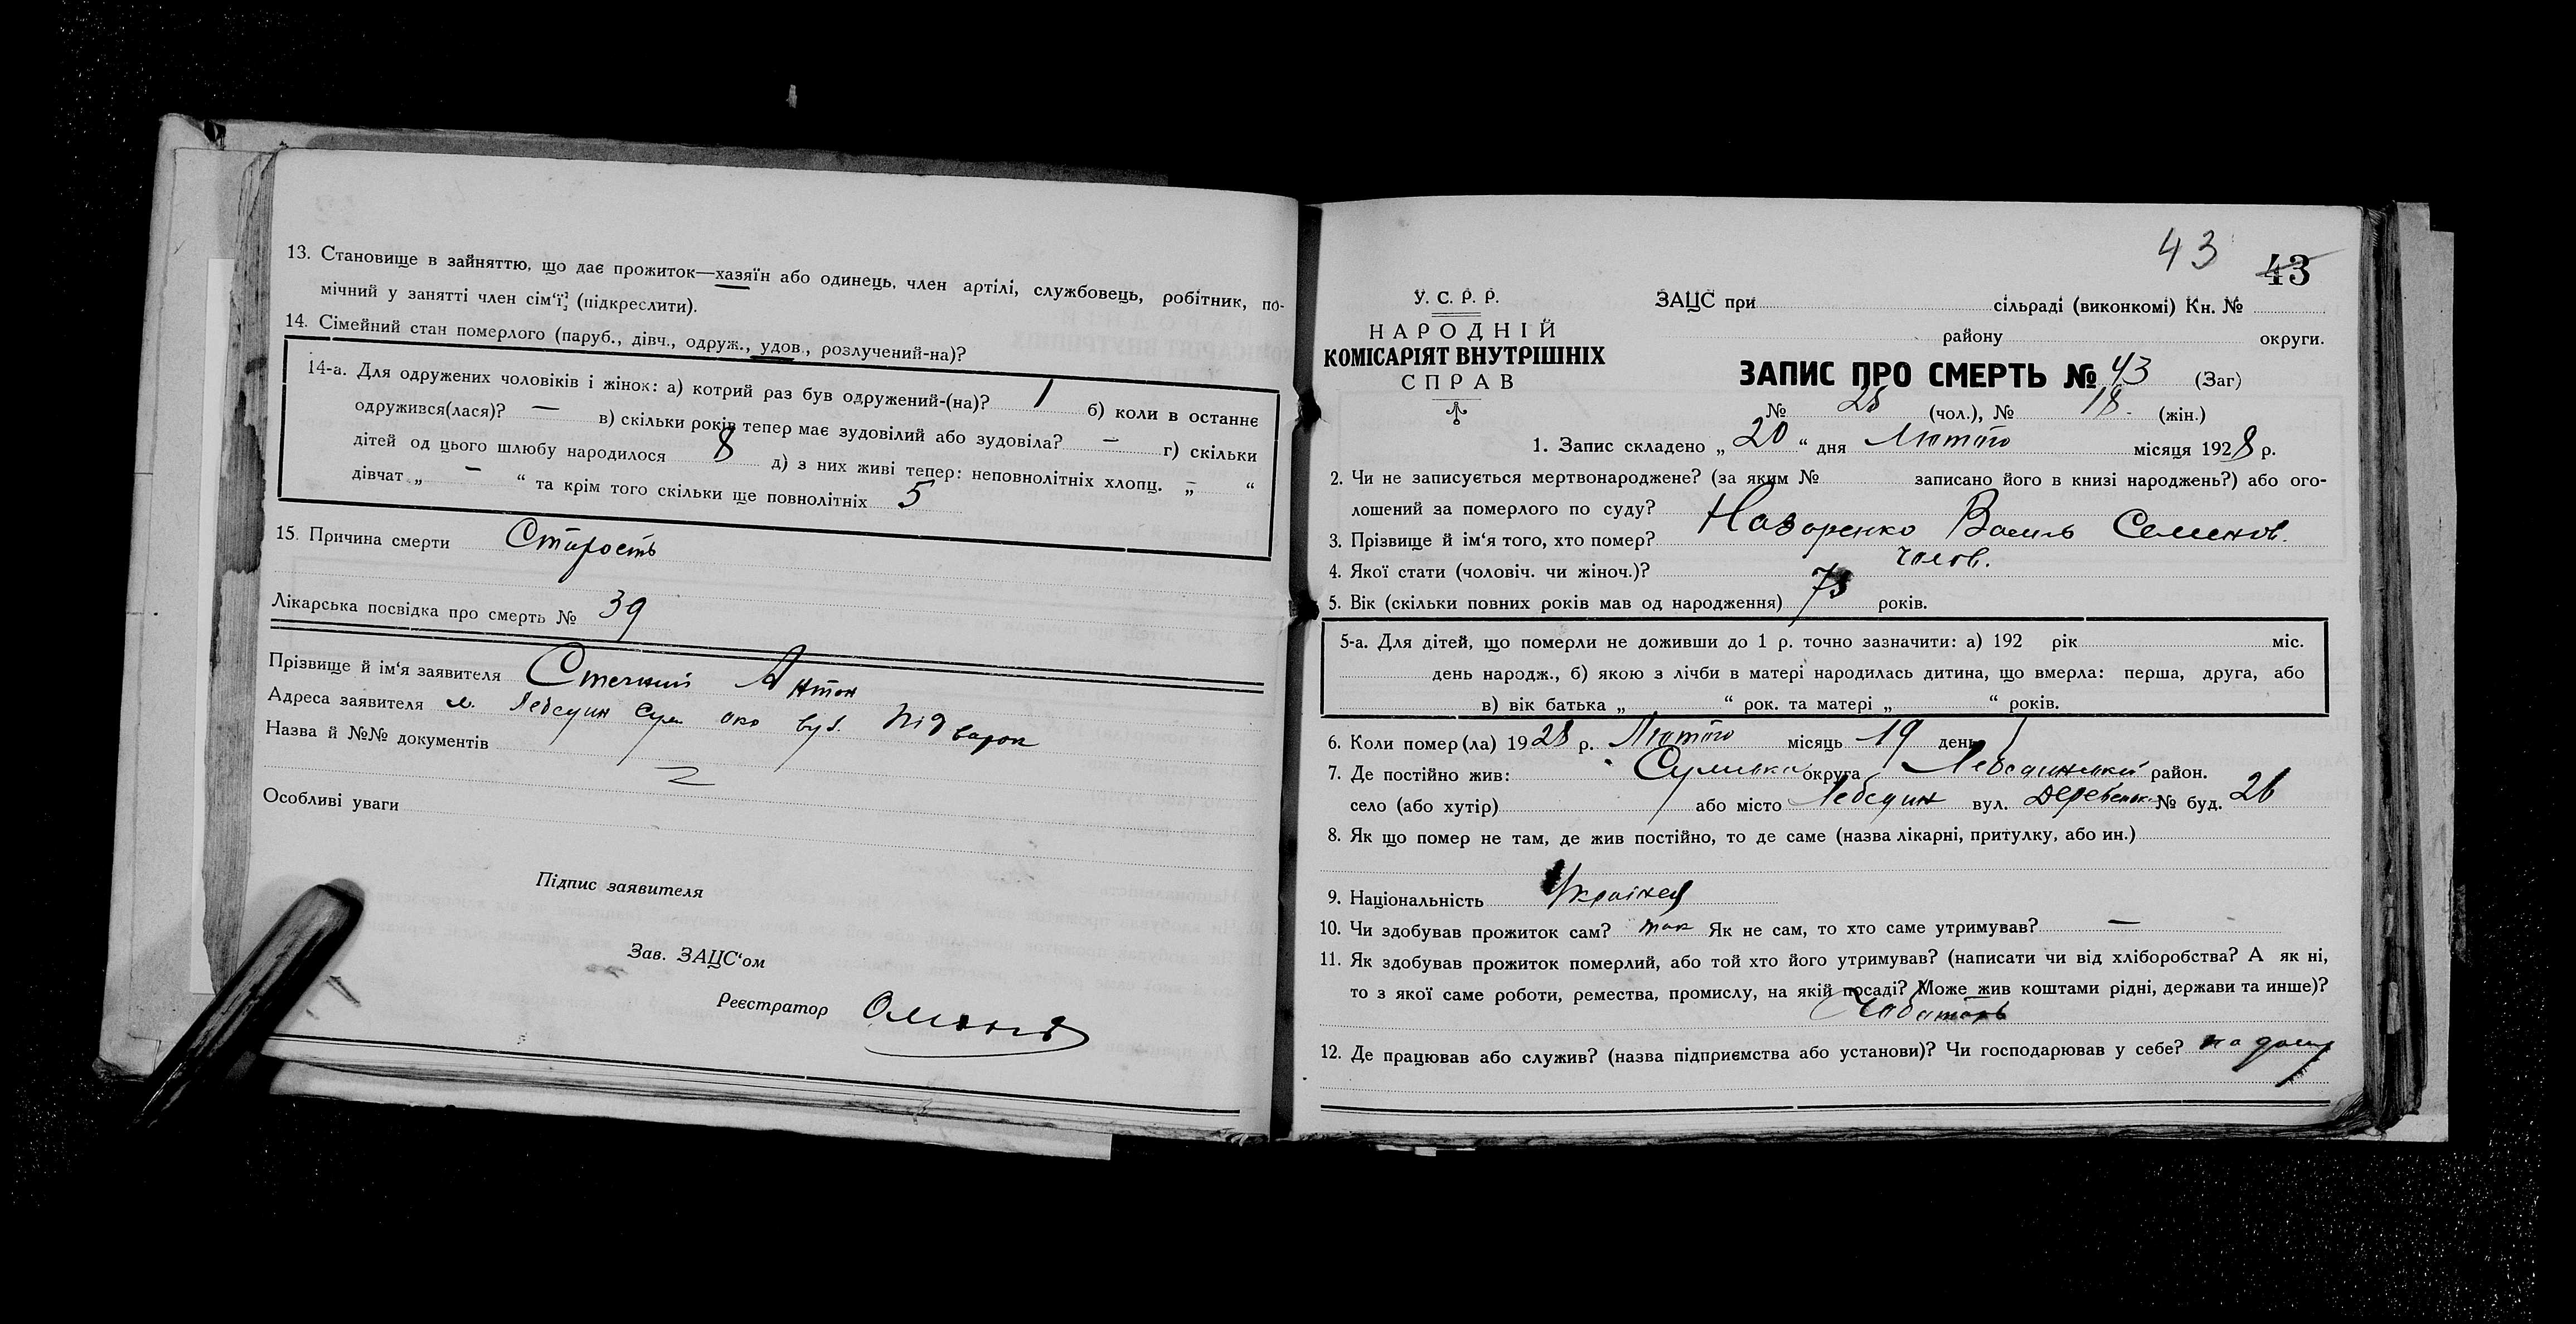 13. Становище в зайняттю, що дає прожиток—хазяїн або одинець, член артілі, службовець, робітник, по-
мічний у занятті член сім'ї; (підкреслити).
14. Сімейний стан померлого (паруб., дівч., одруж., удов., розлучений-на)?
14-а. Для одружених чоловіків і жінок: а) котрий раз був одружений-(на)? 1 б) коли в останнє
одружився(лася)? — в) скільки років тепер має зудовілий або зудовіла? — г) скільки
дітей од цього шлюбу народилося 8 д) з них живі тепер: неповнолітніх хлопц. „ — “
дівчат „ — “ та крім того скільки ще повнолітніх 5
15. Причина смерти Старость
Лікарська посвідка про смерть № 39
Прізвище й ім'я заявителя Антон
Адреса заявителя м. Лебедин Сум око вул. Підварок
Назва й №№ документів
Особливі уваги
Підпис заявителя
Зав. ЗАЦС'ом
Реєстратор
43 43
У. С. Р. Р.
НАРОДНІЙ
КОМІСАРІЯТ ВНУТРІШНІХ
СПРАВ
ЗАЦС при сільраді (виконкомі) Кн. №
району округи.
ЗАПИС ПРО СМЕРТЬ № 43 (Заг)
№ 25 (чол.), № 18 - (жін.)
1. Запис складено „ 20 “ дня Лютого місяця 1928 р.
2. Чи не записується мертвонароджене? (за яким № записано його в книзі народжень?) або ого-
лошений за померлого по суду?
3. Прізвище й ім'я того, хто помер? Назаренко Василь Семенов.
4. Якої стати (чоловіч. чи жіноч.)? чолов.
5. Вік (скільки повних років мав од народження) років.
5-а. Для дітей, що померли не доживши до 1 р. точно зазначити: а) 192 рік міс.
день народж., б) якою з лічби в матері народилась дитина, що вмерла: перша, друга, або
в) вік батька „ “ рок. та матері „ “ років.
6. Коли помер(ла) 1928 р. Лютого місяць 19 день
7. Де постійно жив: Сумська округа Лебединський район.
село (або хутір) або місто Лебедин вул. № буд. 26
8. Як що помер не там, де жив постійно, то де саме (назва лікарні, притулку, або ин.)
9. Національність Українец
10. Чи здобував прожиток сам? так Як не сам, то хто саме утримував? —
11. Як здобував прожиток померлий, або той хто його утримував? (написати чи від хліборобства? А як ні,
то з якої саме роботи, ремества, промислу, на якій посаді? Може жив коштами рідні, держави та инше)?
Чоботарь
12. Де працював або служив? (назва підприємства або установи)? Чи господарював у себе? на дому